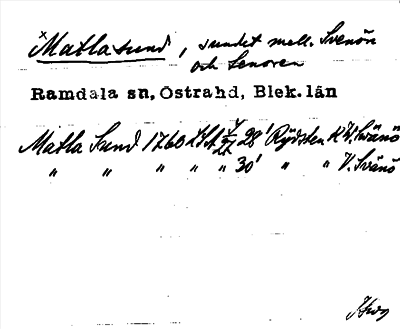 ×Matlasund, sundet mell. Svenön
och Lenoren
Ramdala sn, Östrahd, Blek. län
Matla Sund 1760 28' Rydsten V. Svänö
" " " " " 30' " " V. Svänö